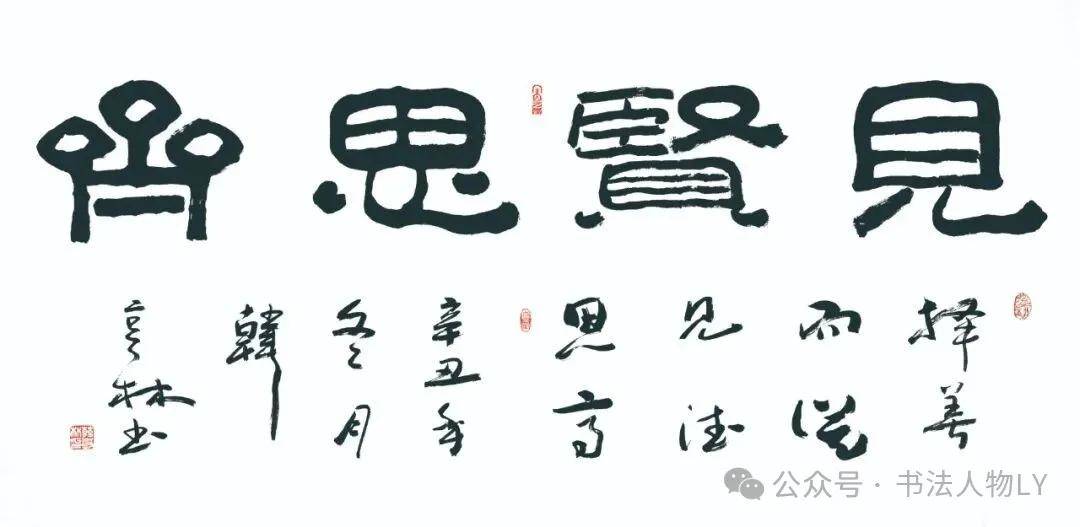 見賢思齊
择善
而從
见德
思齐
辛丑年
冬月
韓
亨林书
公众号 · 书法人物LY